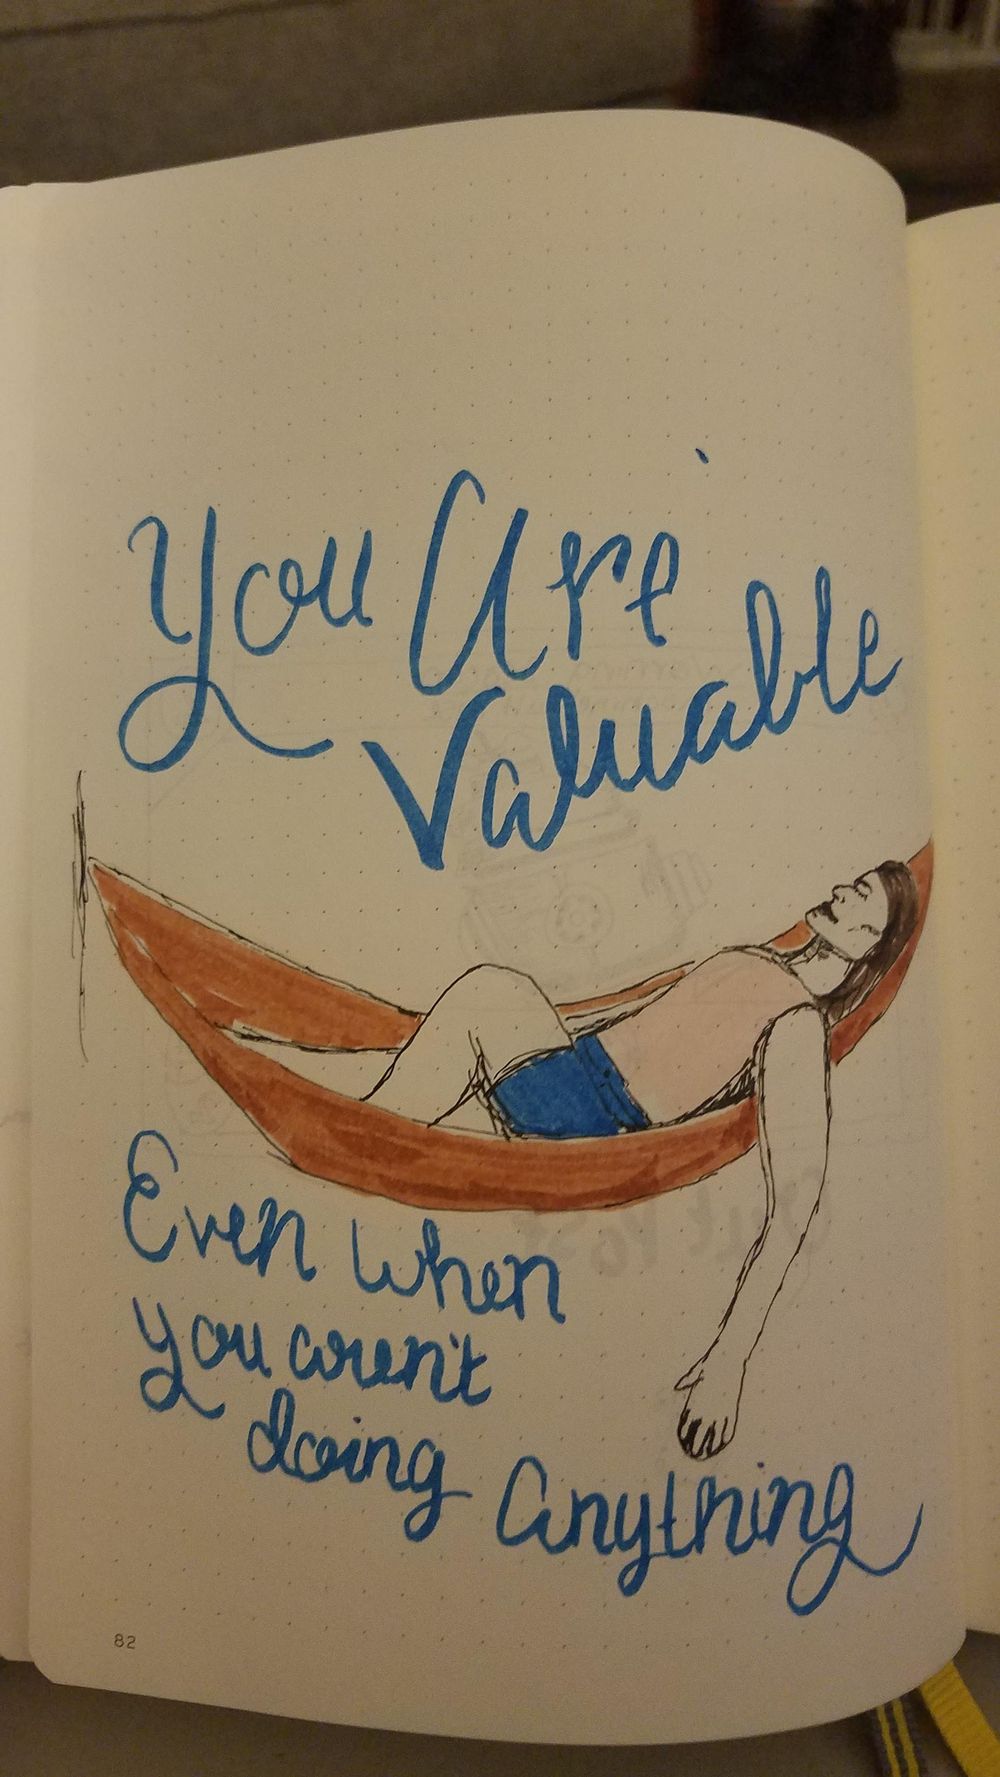 You Are
Valuable
Even When
you aren't
doing Anything
82